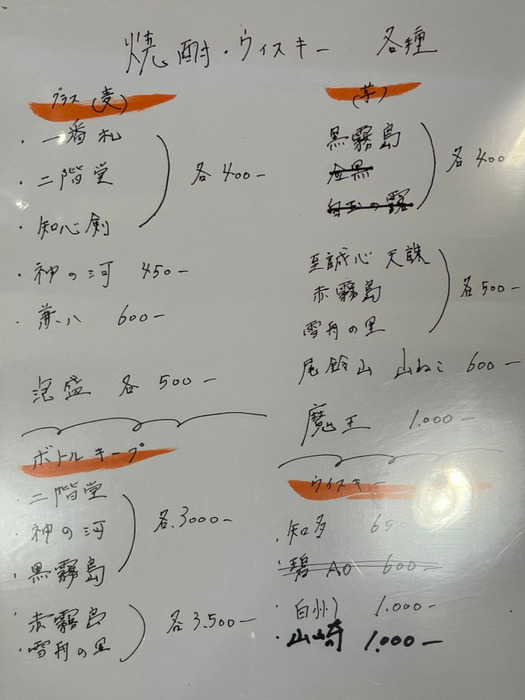 焼酎・ウィスキー 各種
グラス(麦)
・一番札
・二階堂
・知心剣
各400-
・神の河 450-
・兼八 600-
泡盛 各500-
(芋)
黒霧島
各400
至誠心 天誅
赤霧島
雪舟の里
各500-
尾鈴山 山ねこ 600-
魔王 1.000-
ボトルキープ
・二階堂
・神の河
・黒霧島
各.3000-
・赤霧島
・雪舟の里
各3.500-
ウイスキー
・知多 650-
・碧 AO 600-
・白州 1.000-
・山崎 1.000-